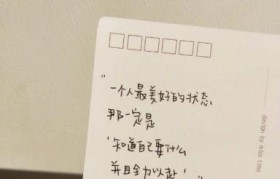 “一个人最美好的状态
那一定是
‘知道自己要什么
并且全力以赴’”